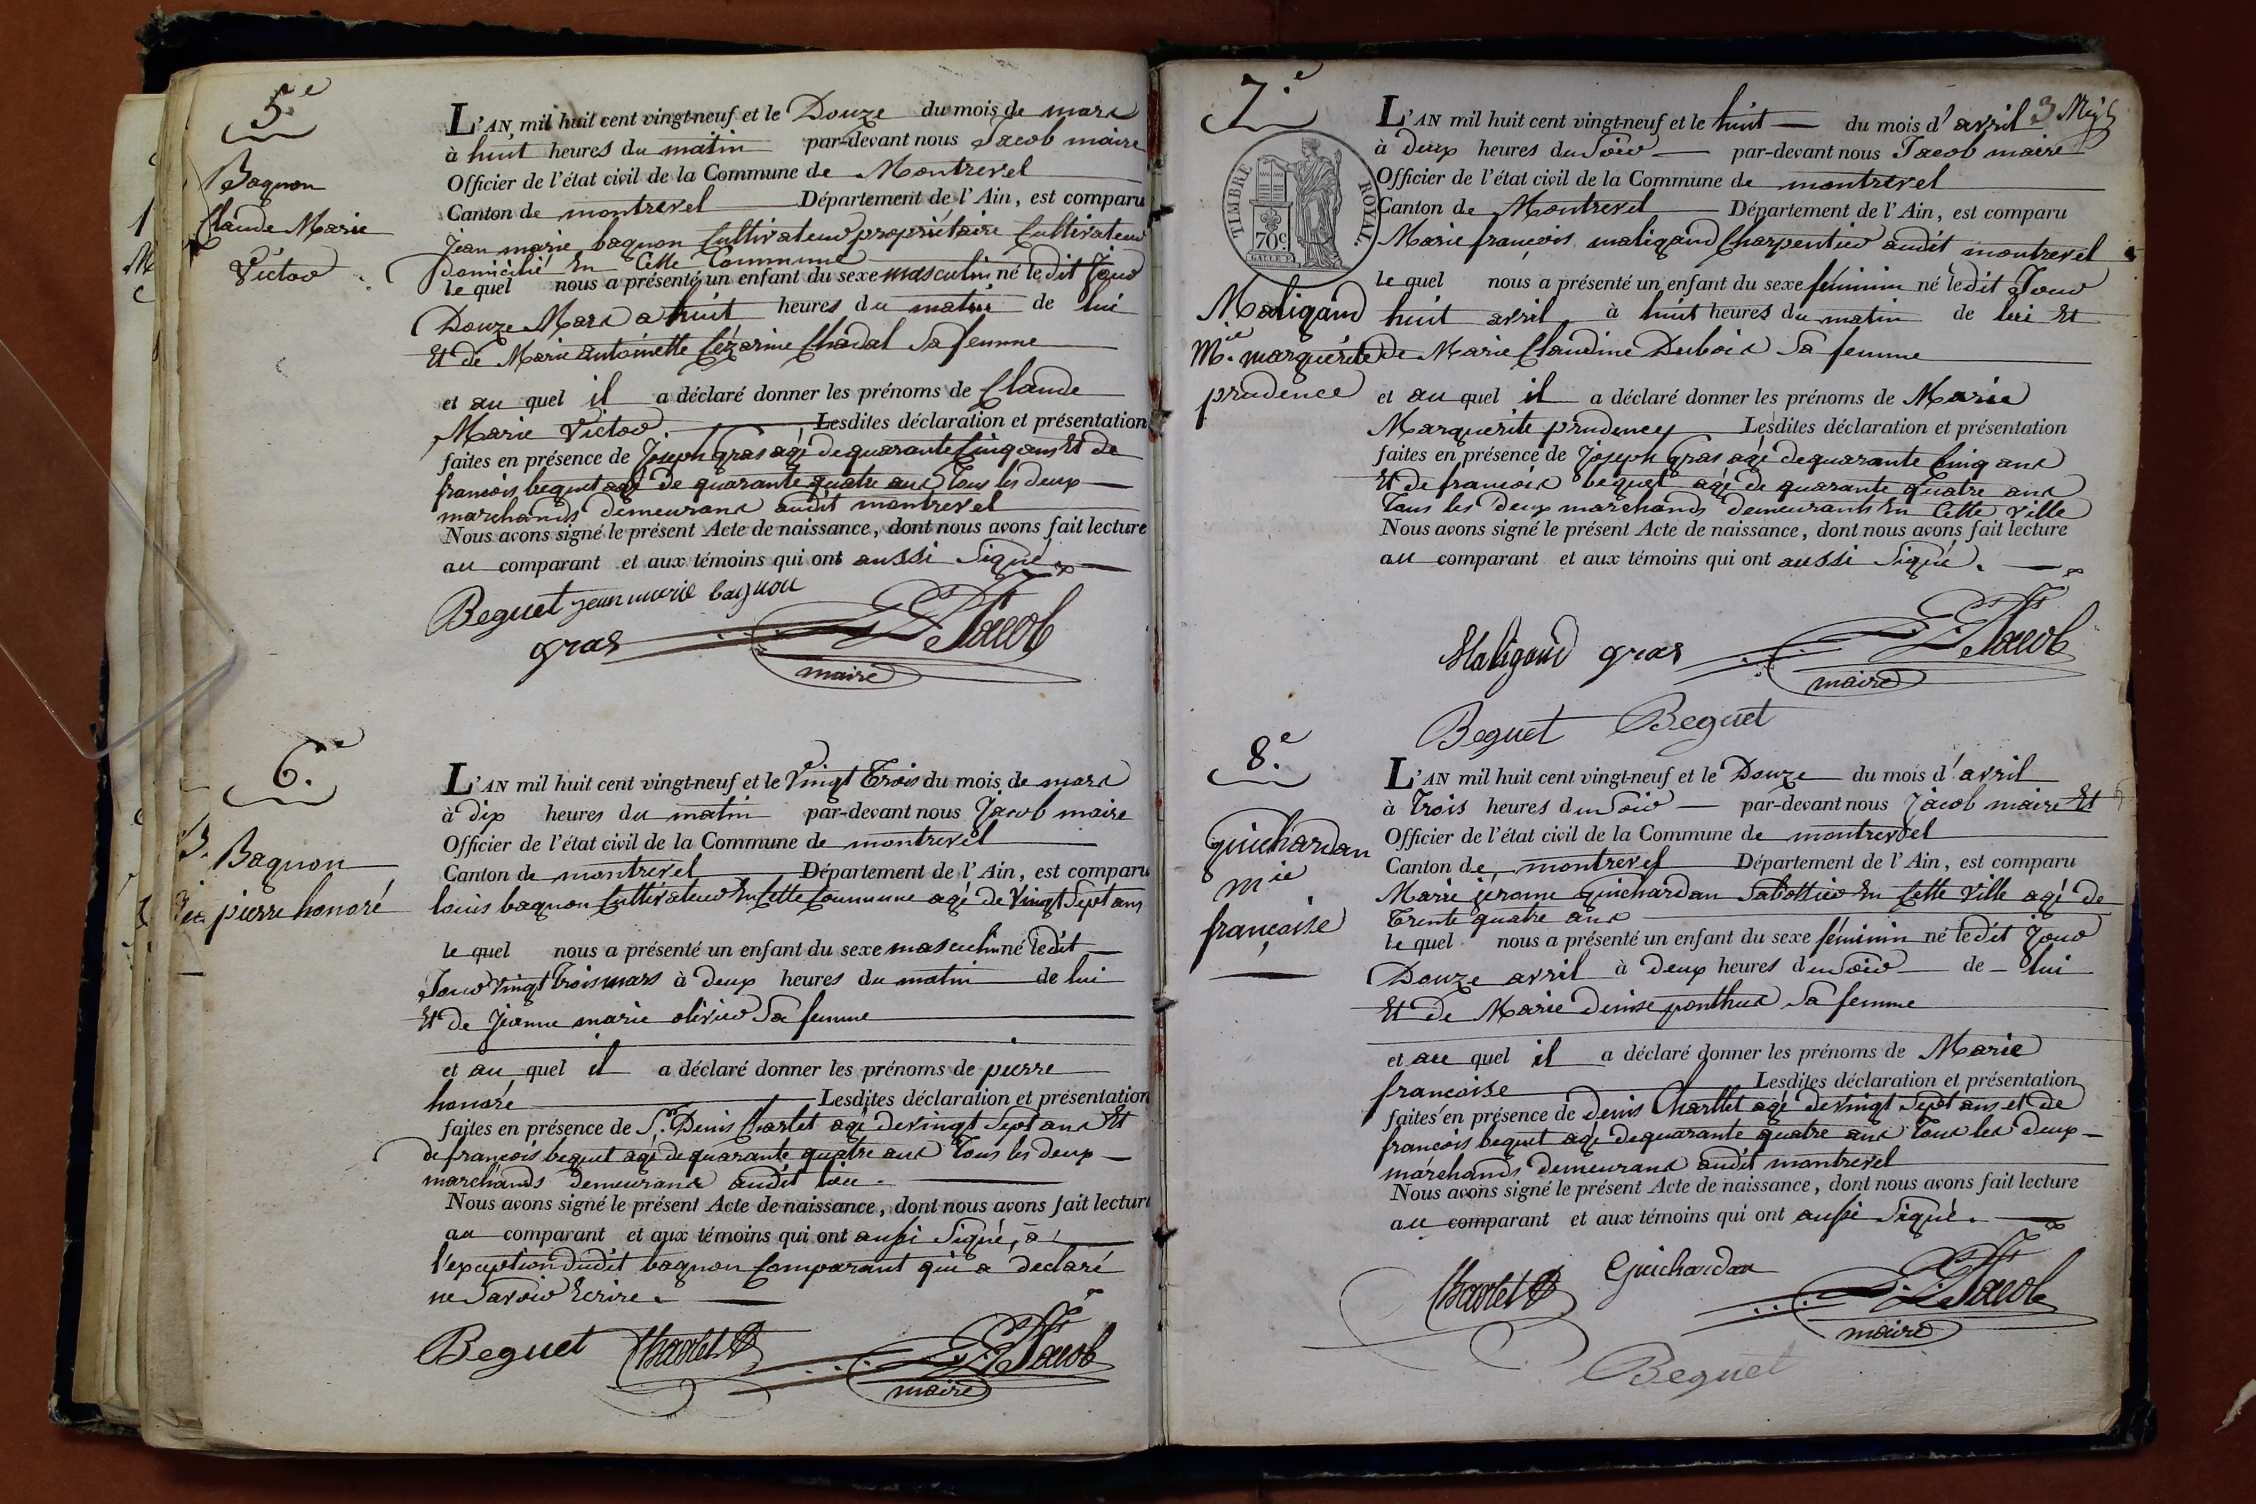 5.e
Bagnon
Claude Marie
Victor
L'AN mil huit cent vingt-neuf et le Douze du mois de mars
à huit heures du matin par-devant nous Jacob maire
Officier de l'état civil de la Commune de Montrevel
Canton de montrevel Département de l'Ain, est comparu
Jean marie bagnon Cultivateur propriétaire Cultivateur
domicilié En Cette Commune
le quel nous a présenté un enfant du sexe masculin né ledit Jour
Douze Mars a huit heures du matin de lui
Et de Marie antoinette Cézarine Chadal Sa femme
et au quel il a déclaré donner les prénoms de Claude
Marie Victor Lesdites déclaration et présentation
faites en présence de Joseph Gras agé de quarante Cinq ans Et de
francois bequet agé de quarante quatre ans Tous les deux
marchands demeurans audit montrevel
Nous avons signé le présent Acte de naissance, dont nous avons fait lecture
au comparant et aux témoins qui ont aussi Signé
Beguet jean marie bagnon
gras Jacob
maire
6.e
Bagnon
pierre honoré
L'AN mil huit cent vingt-neuf et le Vingt Trois du mois de mars
à dix heures du matin par-devant nous Jacob maire
Officier de l'état civil de la Commune de montrevel
Canton de montrevel Département de l'Ain, est comparu
louis bagnon Cultivateur En Cette Commune agé de Vingt Sept ans
le quel nous a présenté un enfant du sexe masculin né ledit
Jour Vingt Trois mars à deux heures du matin de lui
Et de Jeanne marie olivier Sa femme
et au quel il a déclaré donner les prénoms de pierre
honoré Lesdites déclaration et présentation
faites en présence de Sr. Denis Charlet agé de vingt Sept ans Et
de francois bequet agé de quarante quatre ans Tous les deux
marchands demeurans audit lieu.
Nous avons signé le présent Acte de naissance, dont nous avons fait lecture
au comparant et aux témoins qui ont aussi Signé, à
l'exception dudit bagnon Comparant qui a declaré
ne Savoir Ecrire.
Beguet Charlet D Jacob
maire
7.e
TIMBRE ROYAL.
70 c.
Maligand
M.ie marguérite
prudence
L'AN mil huit cent vingt-neuf et le huit du mois d'avril
à deux heures du Soir par-devant nous Jacob maire
Officier de l'état civil de la Commune de montrevel
Canton de Montrevel Département de l'Ain, est comparu
Marie françois maligand Charpentier audit montrevel
le quel nous a présenté un enfant du sexe féminin né ledit Jour
huit avril à huit heures du matin de lui Et
de Marie Claudine Dubois Sa femme
et au quel il a déclaré donner les prénoms de Marie
Marguerite prudence Lesdites déclaration et présentation
faites en présence de Joseph Gras agé de quarante Cinq ans
Et de francois bequet agé de quarante quatre ans
Tous les deux marchands demeurants En Cette Ville
Nous avons signé le présent Acte de naissance, dont nous avons fait lecture
au comparant et aux témoins qui ont aussi Signé.
Maligand gras Jacob
maire
Beguet Beguet
8.e
Guichardan
m ie
françoise
L'AN mil huit cent vingt-neuf et le Douze du mois d'avril
à Trois heures du Soir par-devant nous Jacob maire Et
Officier de l'état civil de la Commune de montrevel
Canton de montrevel Département de l'Ain, est comparu
Marie jerome Guichardan Sabottier En Cette Ville agé de
Trente quatre ans
le quel nous a présenté un enfant du sexe féminin né ledit Jour
Douze avril à deux heures du Soir de lui
Et de Marie denise ponthus Sa femme
et au quel il a déclaré donner les prénoms de Marie
francoise Lesdites déclaration et présentation
faites en présence de denis Charllet agé de vingt Sept ans et de
francois bequet agé de quarante quatre ans Tous les deux
marchands demeurans audit montrevel
Nous avons signé le présent Acte de naissance, dont nous avons fait lecture
au comparant et aux témoins qui ont aussi Signé.
Charlet D Guichardan Jacob
maire
Beguet